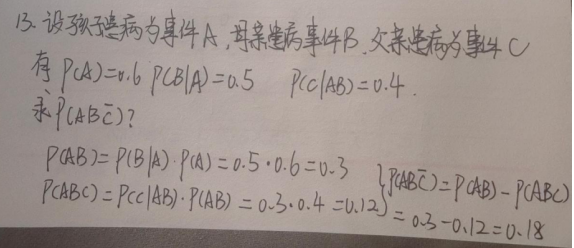 13. 设孩子患病为事件A,母亲患病事件B,父亲患病为事件C
有 P(A)=0.6 P(B|A)=0.5 P(C|AB)=0.4.
求P(ABC̄)?
P(AB)=P(B|A)·P(A)=0.5·0.6=0.3
P(ABC)=P(C|AB)·P(AB)=0.3·0.4=0.12
P(ABC̄)=P(AB)-P(ABC)
=0.3-0.12=0.18